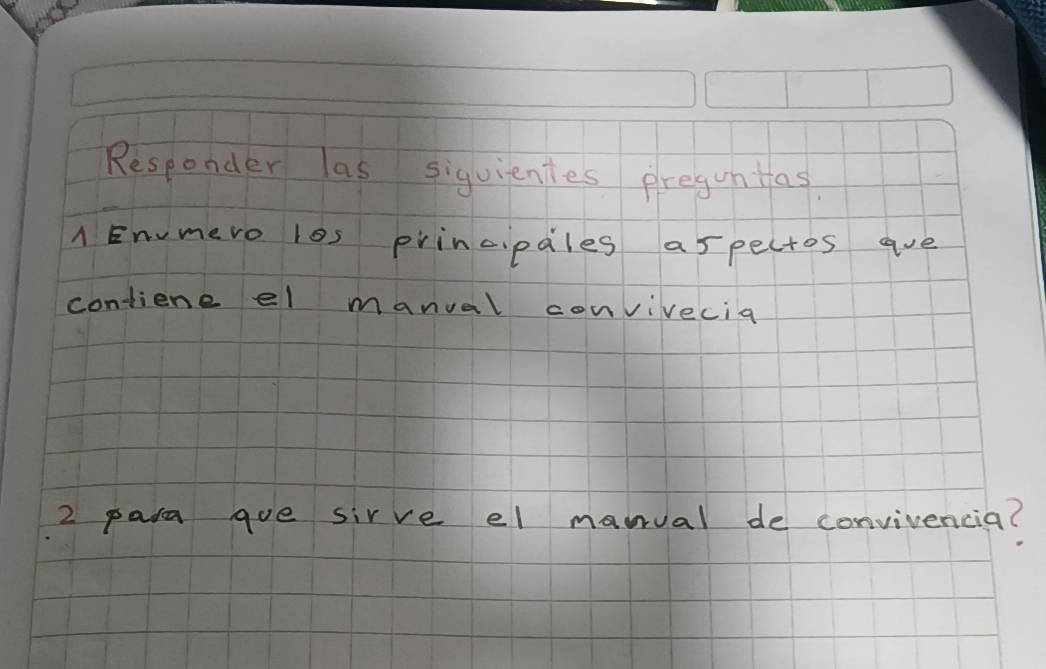 Responder las siguientes preguntas.
1 Enumero los principales aspectos que
contiene el manual convivecia
2 para que sirve el manual de convivencia?